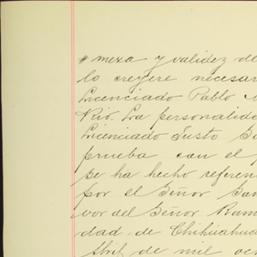 mexa y validez de
lo creyere necesar
Licenciado Pablo
Rio. La personalida
Licenciado Justo
prueba con el
se ha hecho referen
por el Señor
vor del Señor Ram
dad de Chihuahua
Abril de mil oc